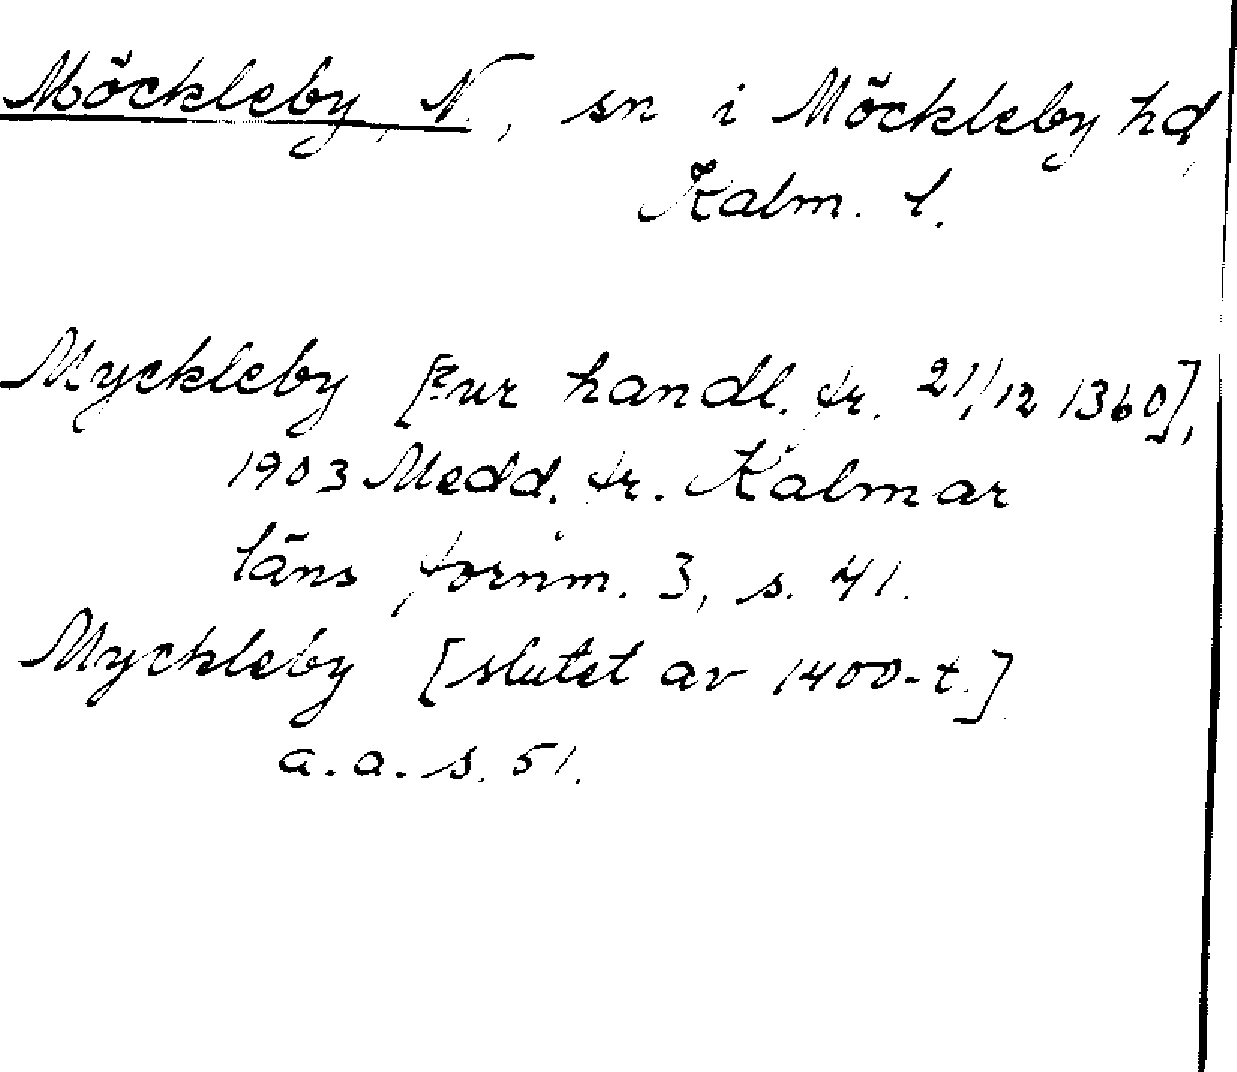 Möckleby, N., sn i Möckleby hd,
Kalm. l.
Myckleby [ur handl. fr. 21/12 1360],
1903 Medd. fr. Kalmar
läns fornm. 3, s. 41.
Myckleby [slutet av 1400-t.]
a.a. s. 51.